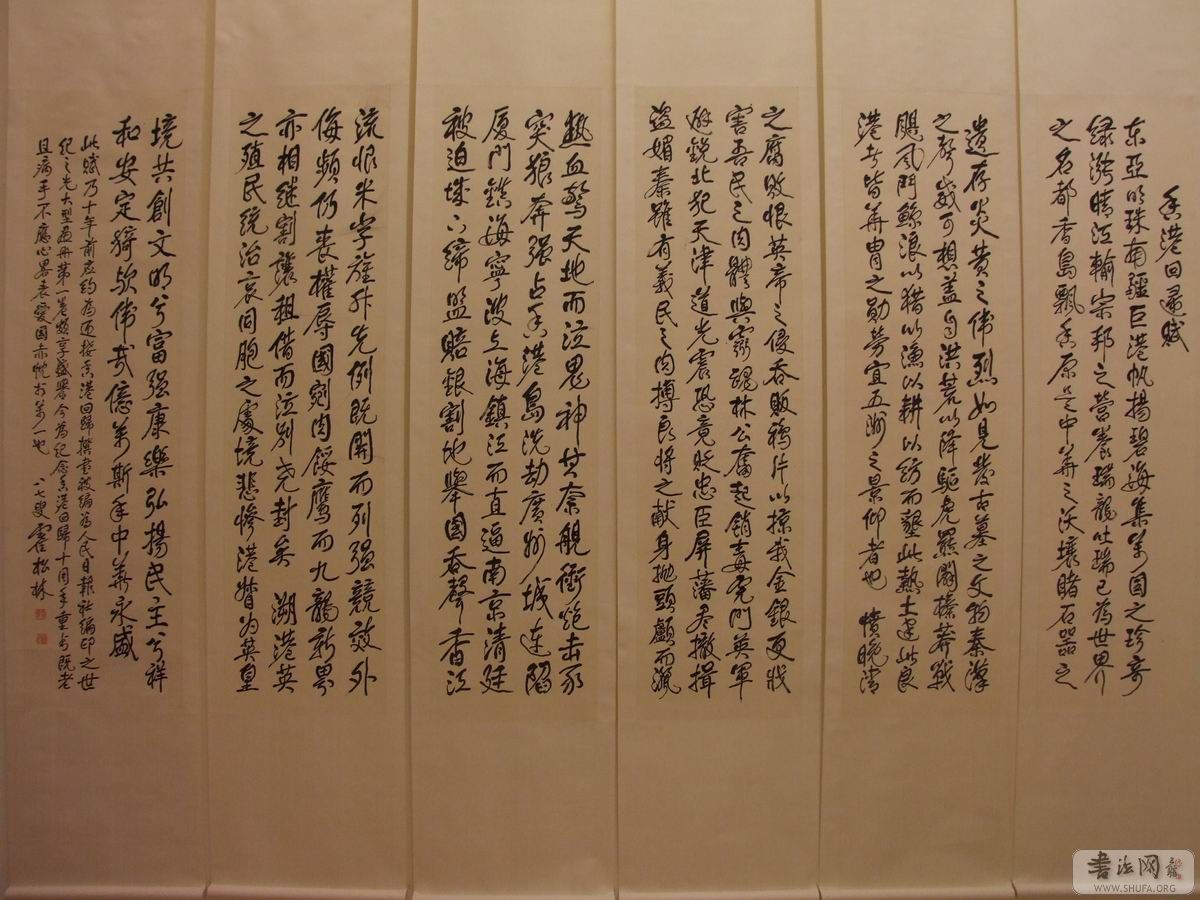 香港回歸賦
东亚明珠南疆巨港帆揚碧海集万国之珍奇
绿漪晴江輸宗邦之营养瑞龍吐瑞已為世界
之名都香島飄香原是中華之沃壤睹石器之
遗存炎黄之偉烈如見發古墓之文物秦漢
之聲威可想盖自洪荒以降驅虎羆闢榛莽戰
颶風鬥鲸浪以猎以漁以耕以紡而墾此熱土建此良
港者皆華胄之勋劳宜五洲之景仰者也 憤晚清
之腐敗恨英帝之侵吞贩鸦片以掠我金銀更戕
害吾民之肉體與靈魂林公奮起销毒虎門英軍
避銳北犯天津道光震恐竟贬忠臣屏藩尽撤揖
盜媚秦雖有義民之肉搏良將之献身抛頭顱而溅
熱血驚天地而泣鬼神其奈舰衝炮击豕
突狼奔强占香港島洗劫廣州城连陷
厦门鎮海寧波上海鎮江而直逼南京清廷
被迫城下缔盟赔銀割地舉国吞聲香江
流恨米字旗升先例既開而列强競效外
侮頻仍丧權辱國剜肉餒鹰而九龍新界
亦相继割讓租借而泣别尧封矣 溯港英
之殖民统治哀同胞之處境悲惨港督为英皇
境共創文明兮富强康樂弘揚民主兮祥
和安定猗欤偉哉億萬斯年中華永盛
此赋乃十年前应约為迎接香港回歸撰書被编為人民日報社编印之世
纪之光大型画册第一卷頗享盛譽今為纪念香港回歸十周年重书既老
且病手不應心畧表愛国赤忱於万一也 八七叟霍松林
書法网
WWW.SHUFA.ORG